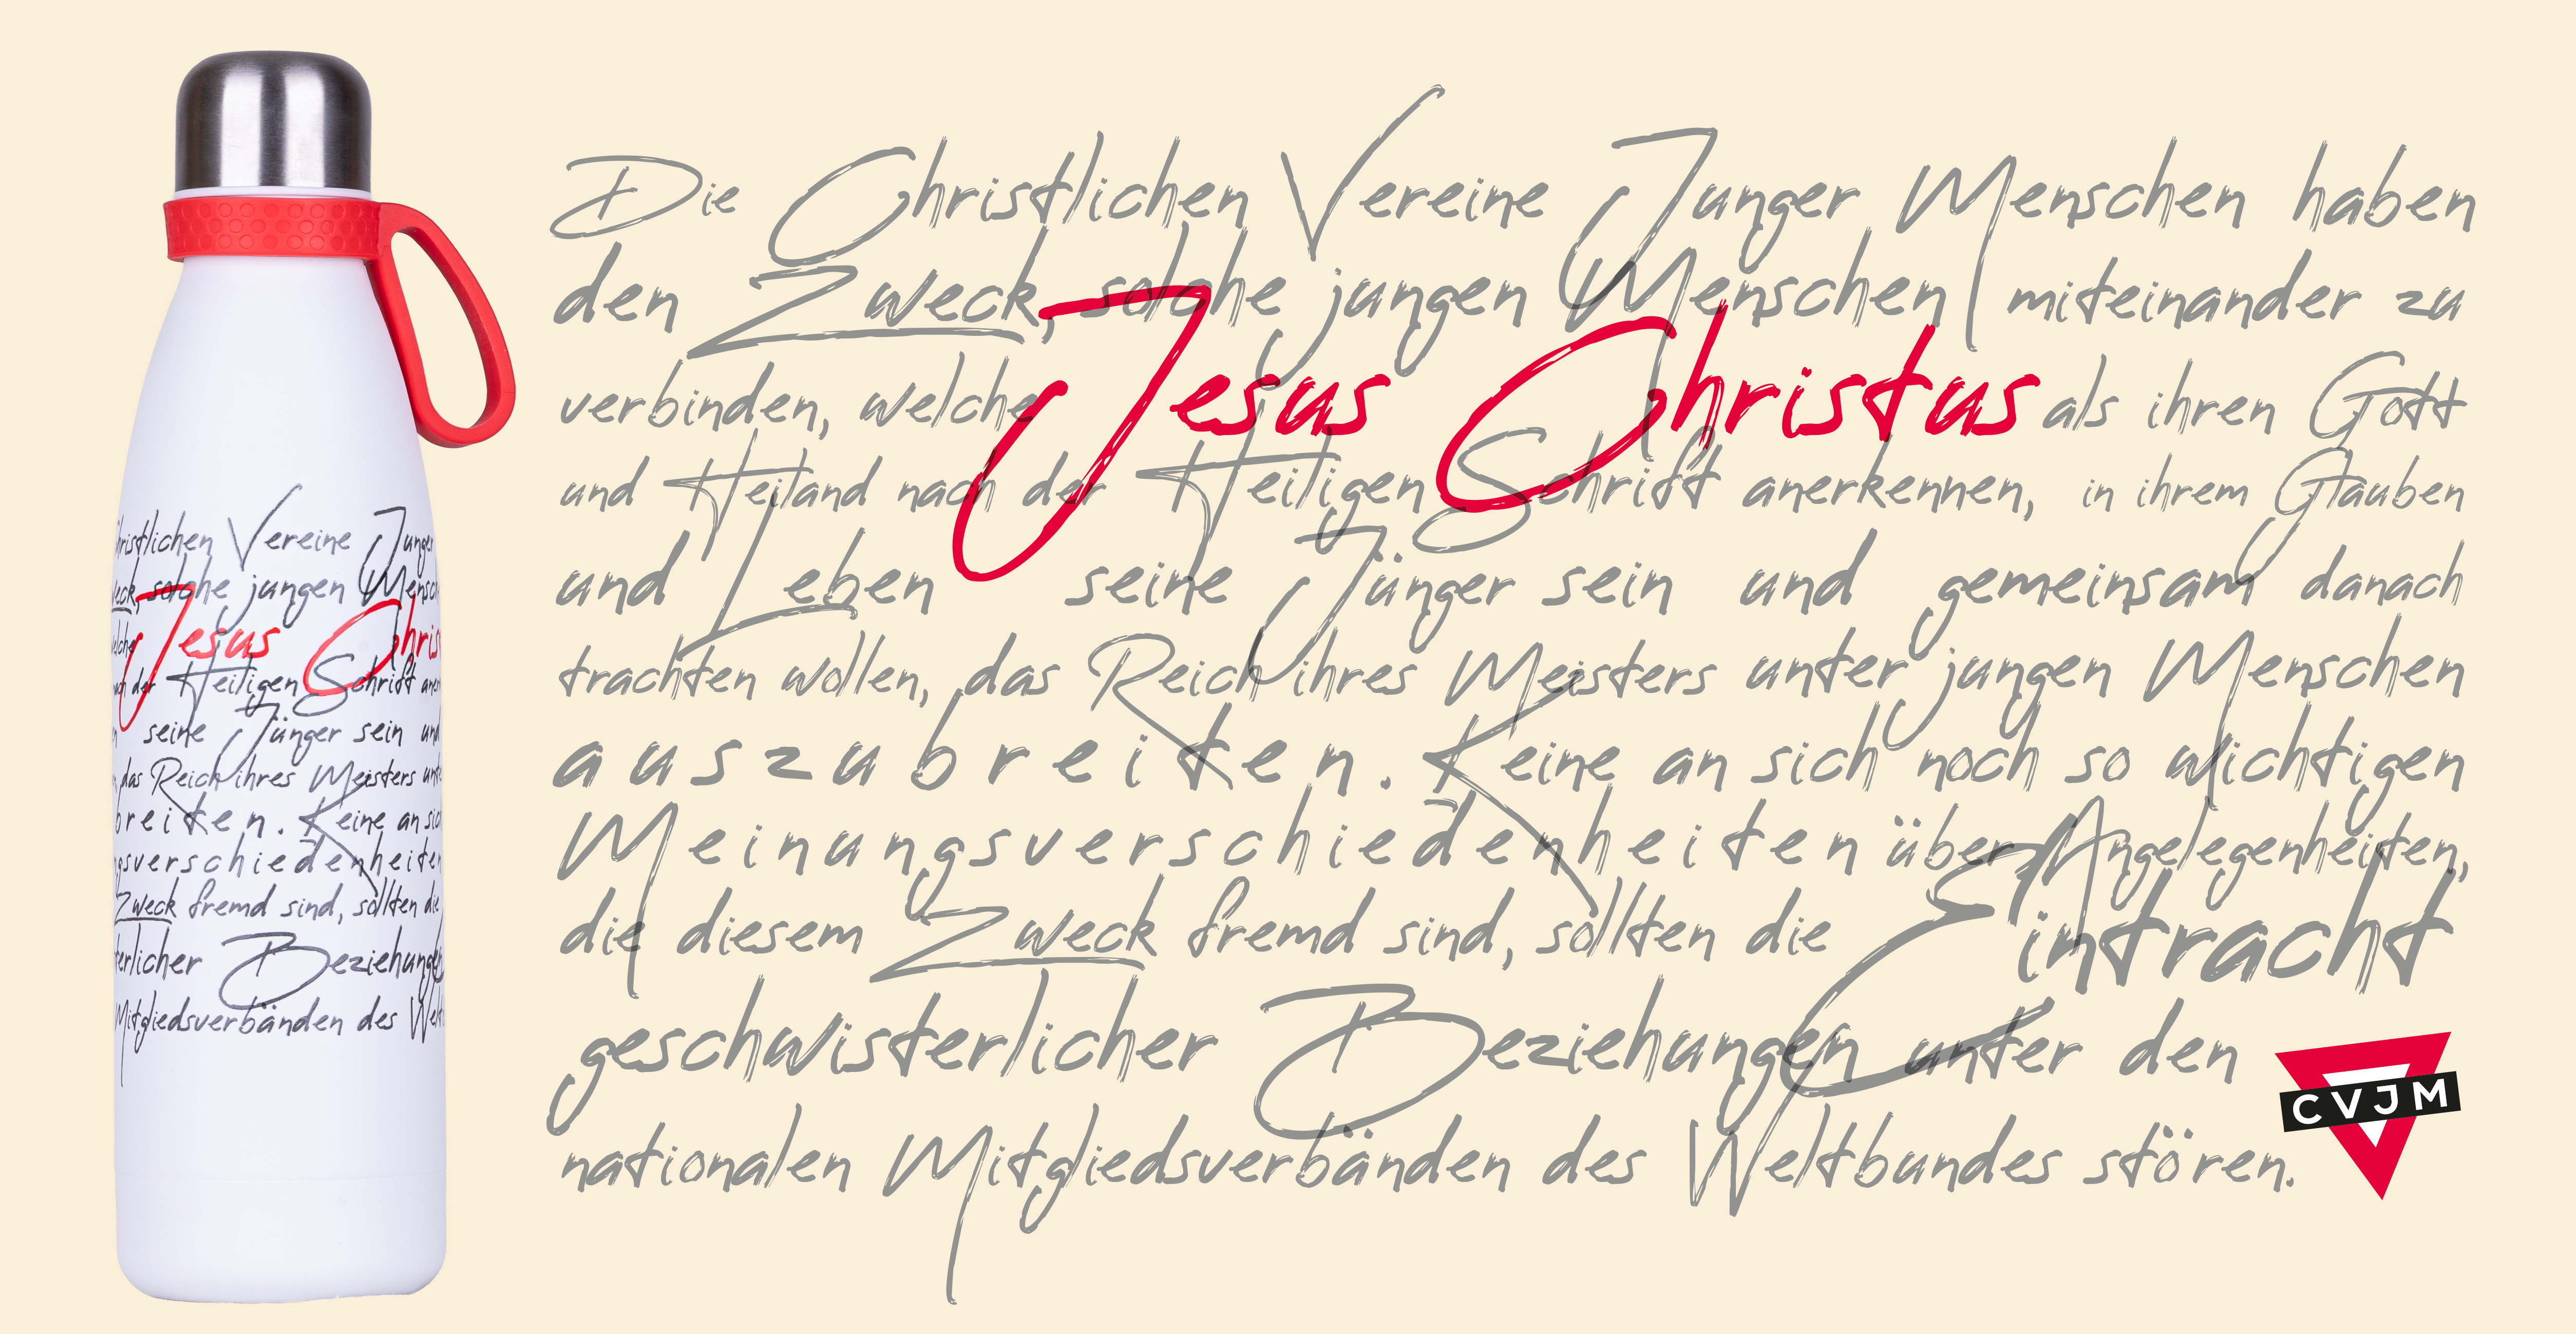 Die Christlichen Vereine Junger Menschen haben
den Zweck, solche jungen Menschen miteinander zu
verbinden, welche Jesus Christus als ihren Gott
und Heiland nach der Heiligen Schrift anerkennen, in ihrem Glauben
und Leben seine Jünger sein und gemeinsam danach
trachten wollen, das Reich ihres Meisters unter jungen Menschen
auszubreiten. Keine an sich noch so wichtigen
Meinungsverschiedenheiten über Angelegenheiten,
die diesem Zweck fremd sind, sollten die Eintracht
geschwisterlicher Beziehungen unter den
nationalen Mitgliedsverbänden des Weltbundes stören.
CVJM
christlichen Vereine Junger
weck, solche jungen Mensc
elche Jesus Christ
ach der Heiligen Schrift aner
en seine Jünger sein und
n, das Reich ihres Meisters unte
breiten. Keine an sic
ngsverschiedenheiten
Zweck fremd sind, sollten die
terlicher Beziehungen
Mitgliedsverbänden des Welt